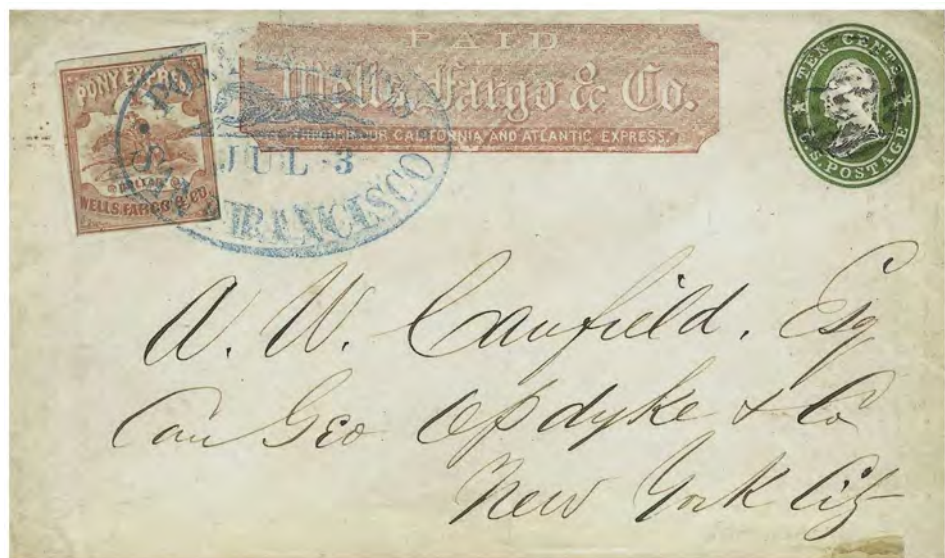 PAID
Wells, Fargo & Co.
THROUGH OUR CALIFORNIA AND ATLANTIC EXPRESS.
PONY EXPRESS
DOLLAR
WELLS, FARGO & CO.
PONY EXPRESS
JUL 3
SAN FRANCISCO
TEN CENTS
U.S. POSTAGE
A. W. Canfield. Esq
Care Geo Opdyke & Co
New York City